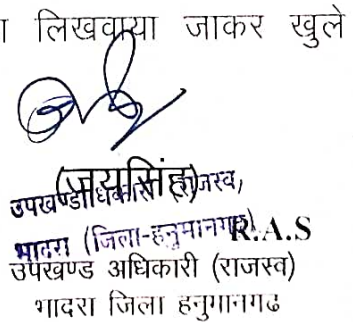 लिखवाया जाकर खुले
(जयसिंह)
उपखण्ड अधिकारी (राजस्व)
भादरा (जिला-हनुमानगढ़) R.A.S
उपखण्ड अधिकारी (राजस्व)
भादरा जिला हनुमानगढ